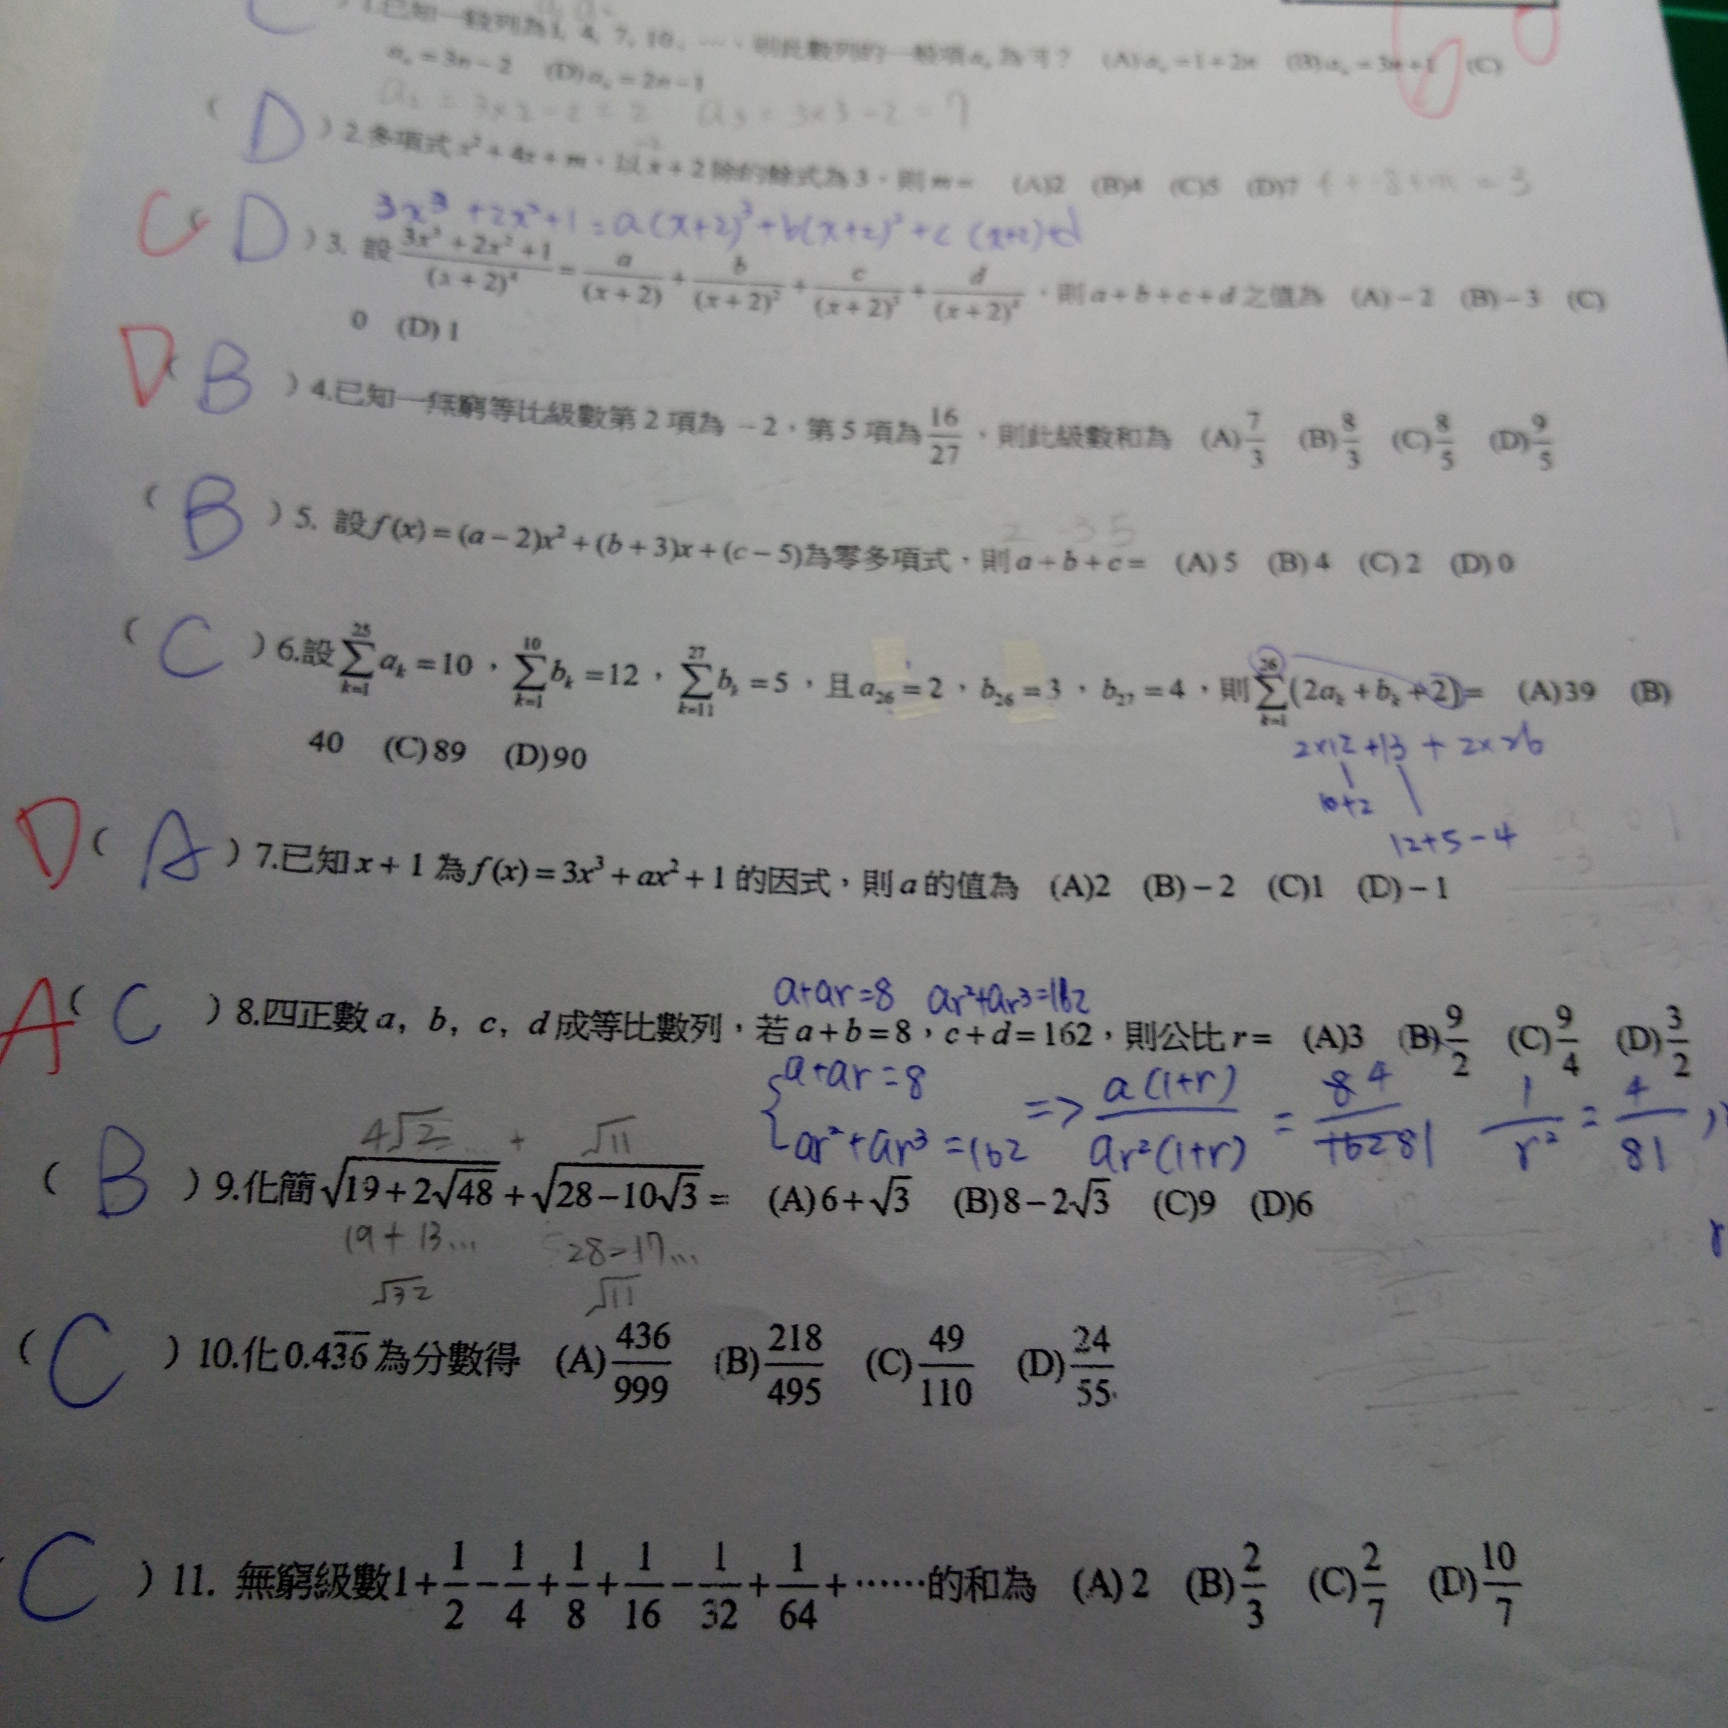 C ) 1.已知一數列為1, 4, 7, 10, …，則此數列的一般項aₙ為何？ (A)aₙ=1+2n (B)aₙ=3n+1 (C)
aₙ=3n-2 (D)aₙ=2n-1
a₂ = 3×2-2 = 2 a₃ = 3×3-2 = 7
( D ) 2.多項式x²+4x+m，以x+2除的餘式為3，則m= (A)2 (B)4 (C)5 (D)7
3x³+2x²+1=a(x+2)³+b(x+2)²+c(x+2)+d
C ( D ) 3. 設(3x³+2x²+1)/(x+2)⁴ = a/(x+2) + b/(x+2)² + c/(x+2)³ + d/(x+2)⁴，則a+b+c+d之值為 (A)-2 (B)-3 (C)
0 (D)1
D ( B ) 4.已知一無窮等比級數第2項為-2，第5項為16/27，則此級數和為 (A)7/3 (B)8/3 (C)8/5 (D)9/5
2 -3 5
( B ) 5. 設f(x)=(a-2)x²+(b+3)x+(c-5)為零多項式，則a+b+c= (A)5 (B)4 (C)2 (D)0
( C ) 6.設∑_{k=1}^{25} aₖ=10，∑_{k=1}^{10} bₖ=12，∑_{k=11}^{27} bₖ=5，且a₂₆=2，b₂₆=3，b₂₇=4，則∑_{k=1}^{26}(2aₖ+bₖ+2)= (A)39 (B)
40 (C)89 (D)90
2×12+13+2×26
10+2
12+5-4
D ( A ) 7.已知x+1為f(x)=3x³+ax²+1的因式，則a的值為 (A)2 (B)-2 (C)1 (D)-1
a+ar=8 ar²+ar³=162
A ( C ) 8.四正數a, b, c, d成等比數列，若a+b=8，c+d=162，則公比r= (A)3 (B)9/2 (C)9/4 (D)3/2
a+ar=8
ar²+ar³=162
=> a(1+r)/ar²(1+r) = 8 4/162 81 1/r² = 4/81
4√2... + √11
( B ) 9.化簡√(19+2√48)+√(28-10√3)= (A)6+√3 (B)8-2√3 (C)9 (D)6
19+13... 28-17...
√32 √11
( C ) 10.化0.43̅6̅為分數得 (A)436/999 (B)218/495 (C)49/110 (D)24/55
C ) 11. 無窮級數1+1/2-1/4+1/8+1/16-1/32+1/64+……的和為 (A)2 (B)2/3 (C)2/7 (D)10/7